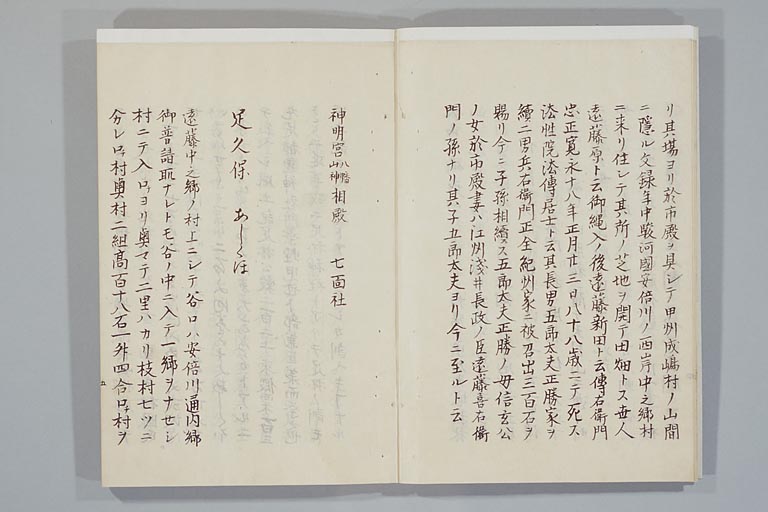 リ其場ヨリ於市殿ヲ具シテ甲州成嶋村ノ山間
ニ隠ル文録年中駿河國安倍川ノ西岸中之郷村
ニ来リ住シテ其所ノ芝地ヲ開テ田畑トス世人
遠藤原ト云御縄入ノ後遠藤新田ト云傳右衛門
忠正寛永十八年正月廿三日八十八歳ニテ死ス
法性院法傳居士ト云其長男五郎太夫正勝家ヲ
續二男兵右衛門正全紀州家ニ被召出三百石ヲ
賜リ今ニ子孫相續ス五郎太夫正勝ノ母信玄公
ノ女於市殿妻ハ江州淺井長政ノ臣遠藤喜右衛
門ノ孫ナリ其子五郎太夫ヨリ今ニ至ルト云
神明宮 八幡 山神 相殿 七面社
足久保 あしくほ
遠藤中之郷ノ村上ニシテ谷口ハ安倍川通内郷
御普請所ナレトモ谷ノ中ニ入テ一郷ヲナセシ
村ニテ入口ヨリ奥マテ二里ハカリ枝村七ツニ
分レ口村奥村二組高百十八石一升四合口村ヲ
五